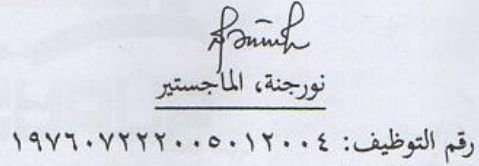 نورجنة، الماجستير
رقم التوظيف: ١٩٧٦٠٧٢٢٢٠٠٥٠١٢٠٠٤